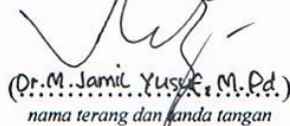 (Dr. M. Jamil Yusuf, M.Pd)
nama terang dan tanda tangan